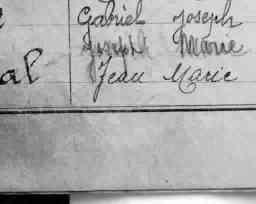 Gabriel Joseph
Joseph Marie
al Jean Marie